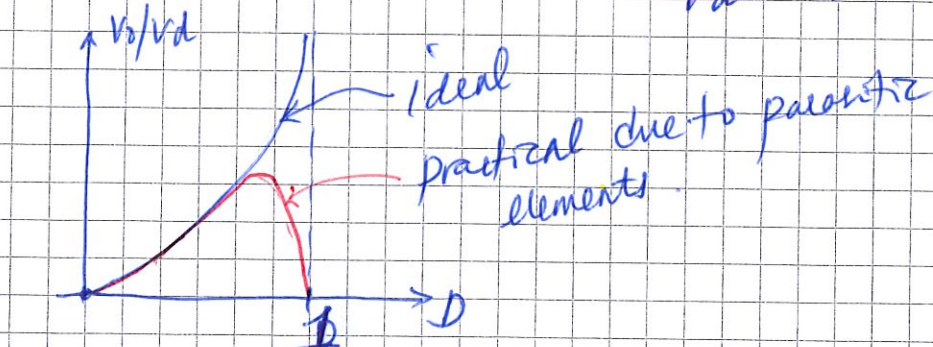 Vo/Vd
ideal
practical due to parasitic
elements.
D
1